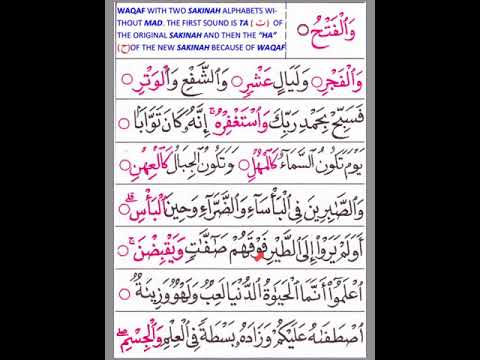 WAQAF WITH TWO SAKINAH ALPHABETS WI-
THOUT MAD. THE FIRST SOUND IS TA (ت) OF
THE ORIGINAL SAKINAH AND THEN THE “HA”
(ح)OF THE NEW SAKINAH BECAUSE OF WAQAF
وَالْفَتْحُ
وَالْفَجْرِ وَلَيَالٍ عَشْرٍ وَالشَّفْعِ وَالْوَتْرِ
فَسَبِّحْ بِحَمْدِ رَبِّكَ وَاسْتَغْفِرْهُ ۚ إِنَّهُ كَانَ تَوَّابًا
يَوْمَ تَكُونُ السَّمَاءُ كَالْمُهْلِ وَتَكُونُ الْجِبَالُ كَالْعِهْنِ
وَالصَّابِرِينَ فِي الْبَأْسَاءِ وَالضَّرَّاءِ وَحِينَ الْبَأْسِ ۗ
أَوَلَمْ يَرَوْا إِلَى الطَّيْرِ فَوْقَهُمْ صَافَّاتٍ وَيَقْبِضْنَ ۚ
اعْلَمُوا أَنَّمَا الْحَيَاةُ الدُّنْيَا لَعِبٌ وَلَهْوٌ وَزِينَةٌ
اصْطَفَاهُ عَلَيْكُمْ وَزَادَهُ بَسْطَةً فِي الْعِلْمِ وَالْجِسْمِ ۖ